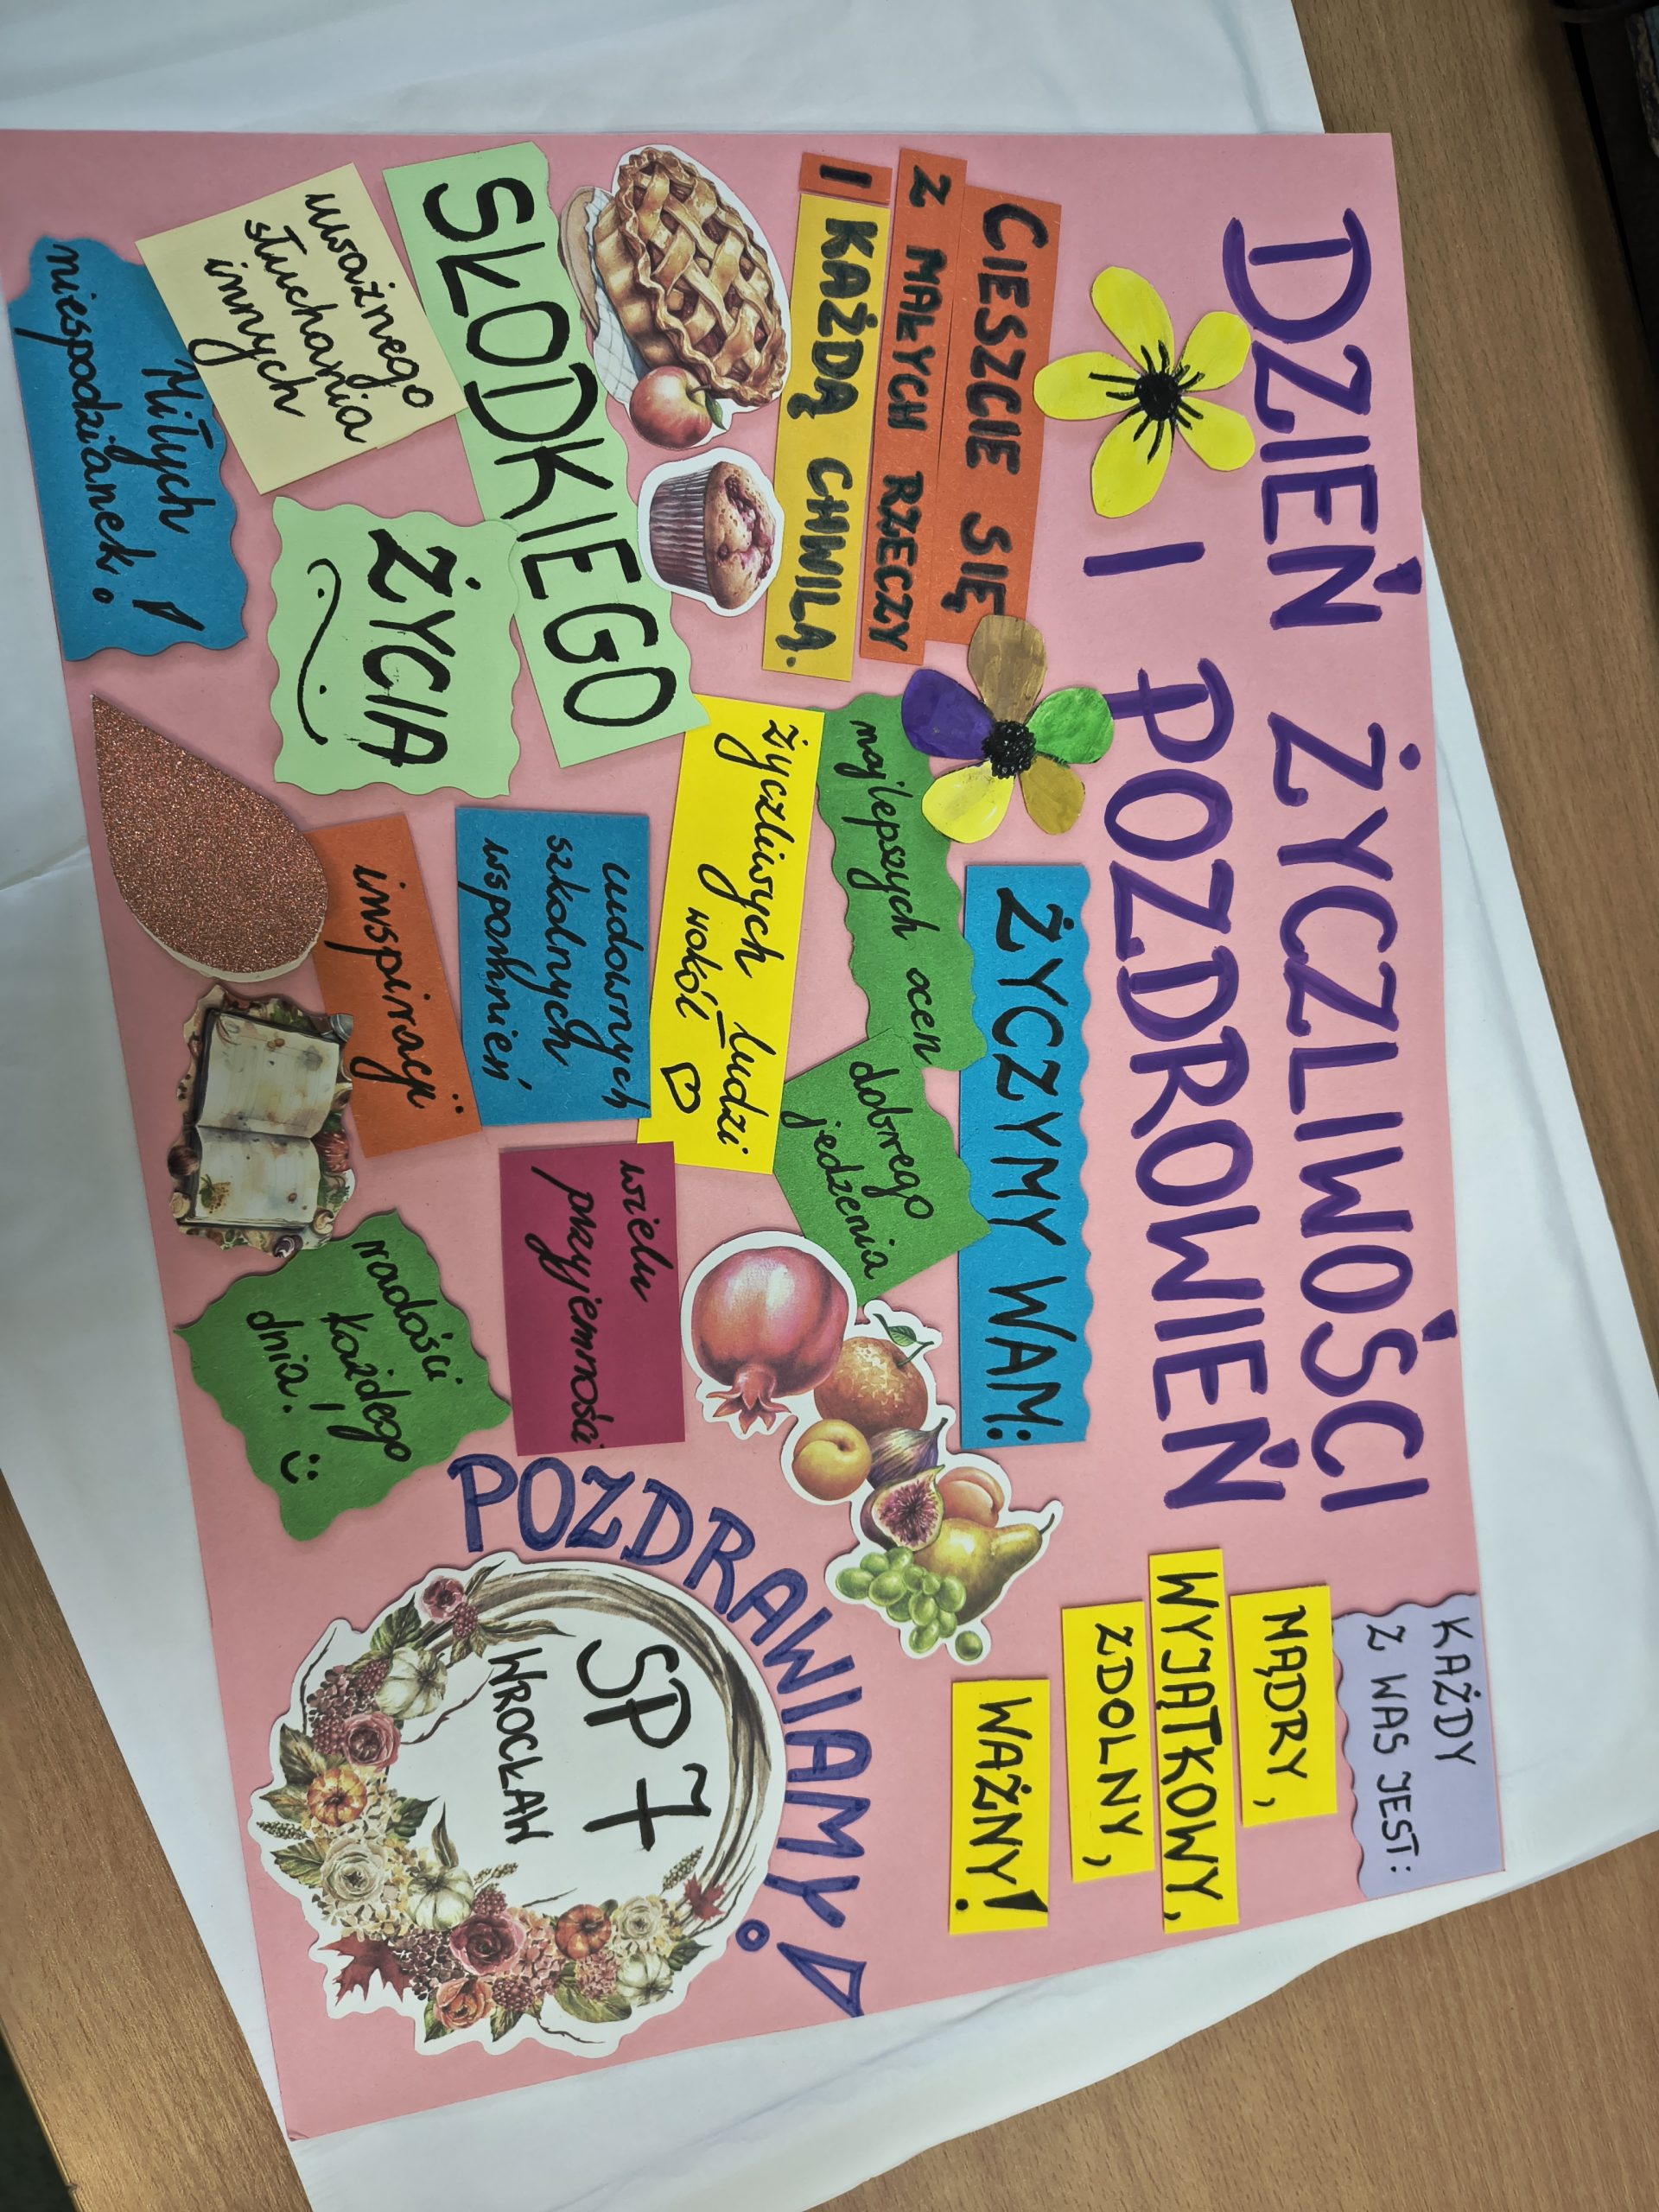 DZIEŃ ŻYCZLIWOŚCI
I POZDROWIEŃ
KAŻDY
Z WAS JEST:
MĄDRY,
WYJĄTKOWY,
ZDOLNY,
WAŻNY!
CIESZCIE SIĘ
Z MAŁYCH RZECZY
I KAŻDĄ CHWILĄ.
ŻYCZYMY WAM:
najlepszych ocen
dobrego
jedzenia
życzliwych ludzi
wokół
cudownych
szkolnych
wspomnień
inspiracji
wielu
przyjemności
radości
każdego
dnia!
SŁODKIEGO
ŻYCIA
uważnego
słuchania
innych
Miłych
niespodzianek!
POZDRAWIAMY!
SP7
WROCŁAW